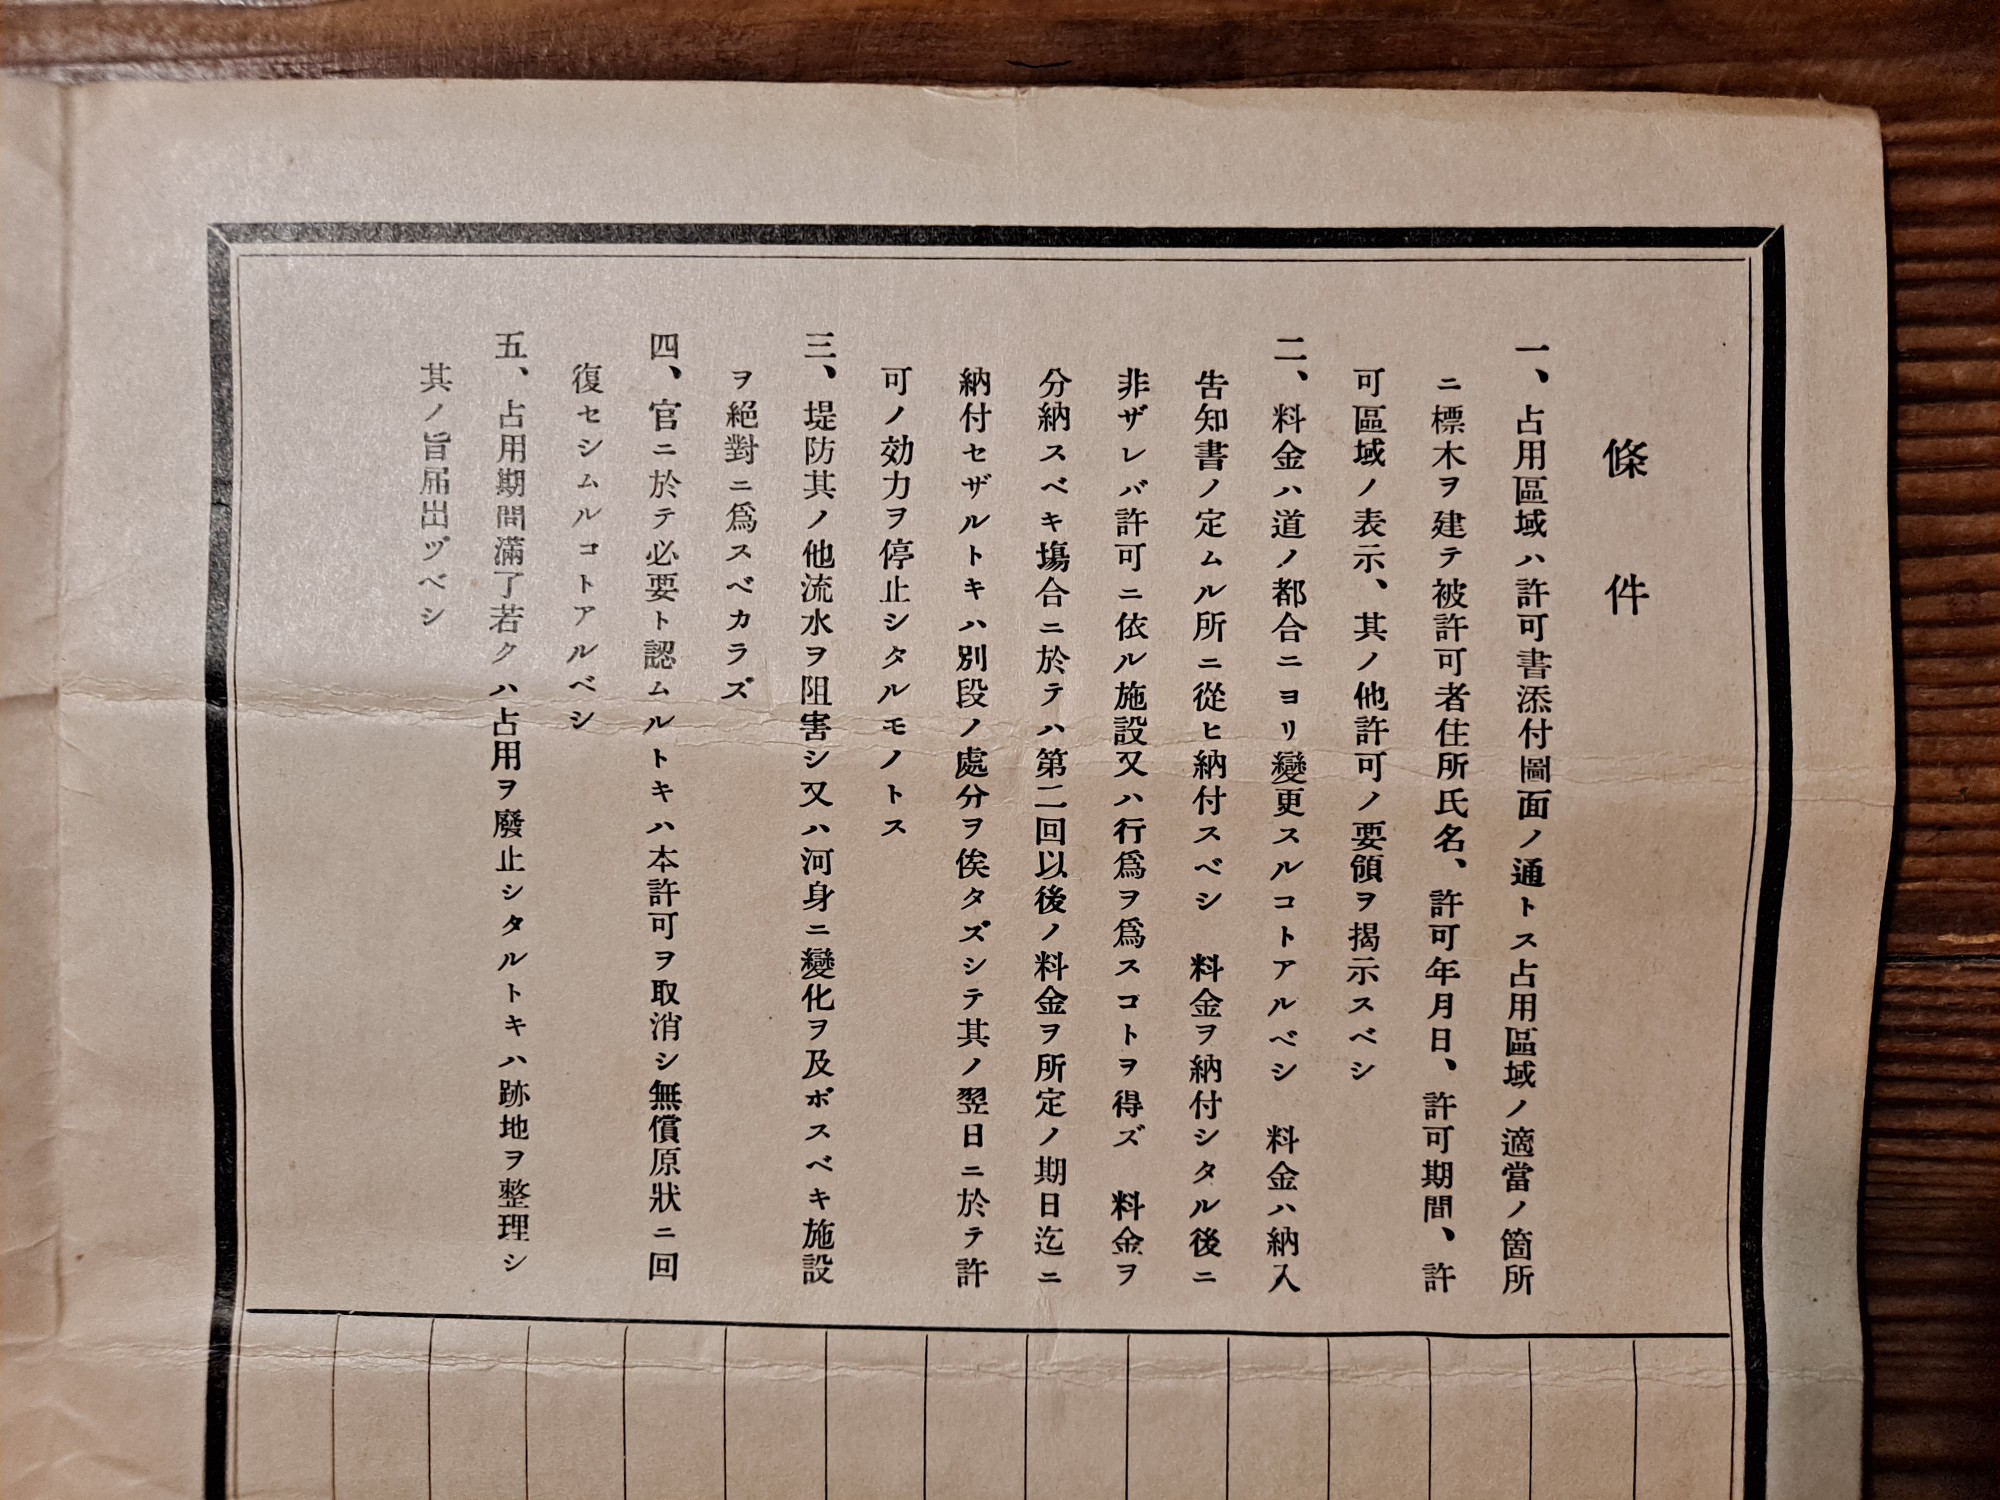 條件
一、占用區域ハ許可書添付圖面ノ通トス占用區域ノ適當ノ箇所
ニ標木ヲ建テ被許可者住所氏名、許可年月日、許可期間、許
可區域ノ表示、其ノ他許可ノ要領ヲ揭示スベシ
二、料金ハ道ノ都合ニヨリ變更スルコトアルベシ 料金ハ納入
告知書ノ定ムル所ニ從ヒ納付スベシ 料金ヲ納付シタル後ニ
非ザレバ許可ニ依ル施設又ハ行爲ヲ爲スコトヲ得ズ 料金ヲ
分納スベキ塲合ニ於テハ第二回以後ノ料金ヲ所定ノ期日迄ニ
納付セザルトキハ別段ノ處分ヲ俟タズシテ其ノ翌日ニ於テ許
可ノ効力ヲ停止シタルモノトス
三、堤防其ノ他流水ヲ阻害シ又ハ河身ニ變化ヲ及ボスベキ施設
ヲ絕對ニ爲スベカラズ
四、官ニ於テ必要ト認ムルトキハ本許可ヲ取消シ無償原狀ニ回
復セシムルコトアルベシ
五、占用期間滿了若クハ占用ヲ廢止シタルトキハ跡地ヲ整理シ
其ノ旨届出ヅベシ